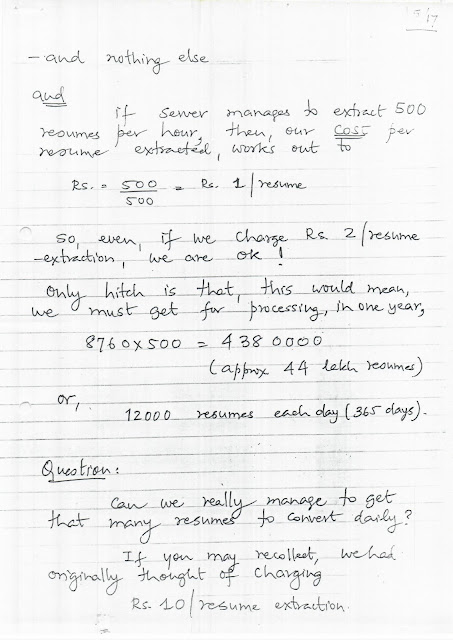 5/17
- and nothing else
and
if server manages to extract 500
resumes per hour, then, our cost per
resume extracted, works out to
Rs. = 500/500 = Rs. 1/resume
So, even, if we charge Rs. 2/resume
-extraction, we are ok!
Only hitch is that, this would mean,
we must get for processing, in one year,
8760 x 500 = 4380000
(approx 44 lakh resumes)
or,
12000 resumes each day (365 days).
Question:
Can we really manage to get
that many resumes to convert daily?
If you may recollect, we had
originally thought of charging
Rs. 10/resume extraction.